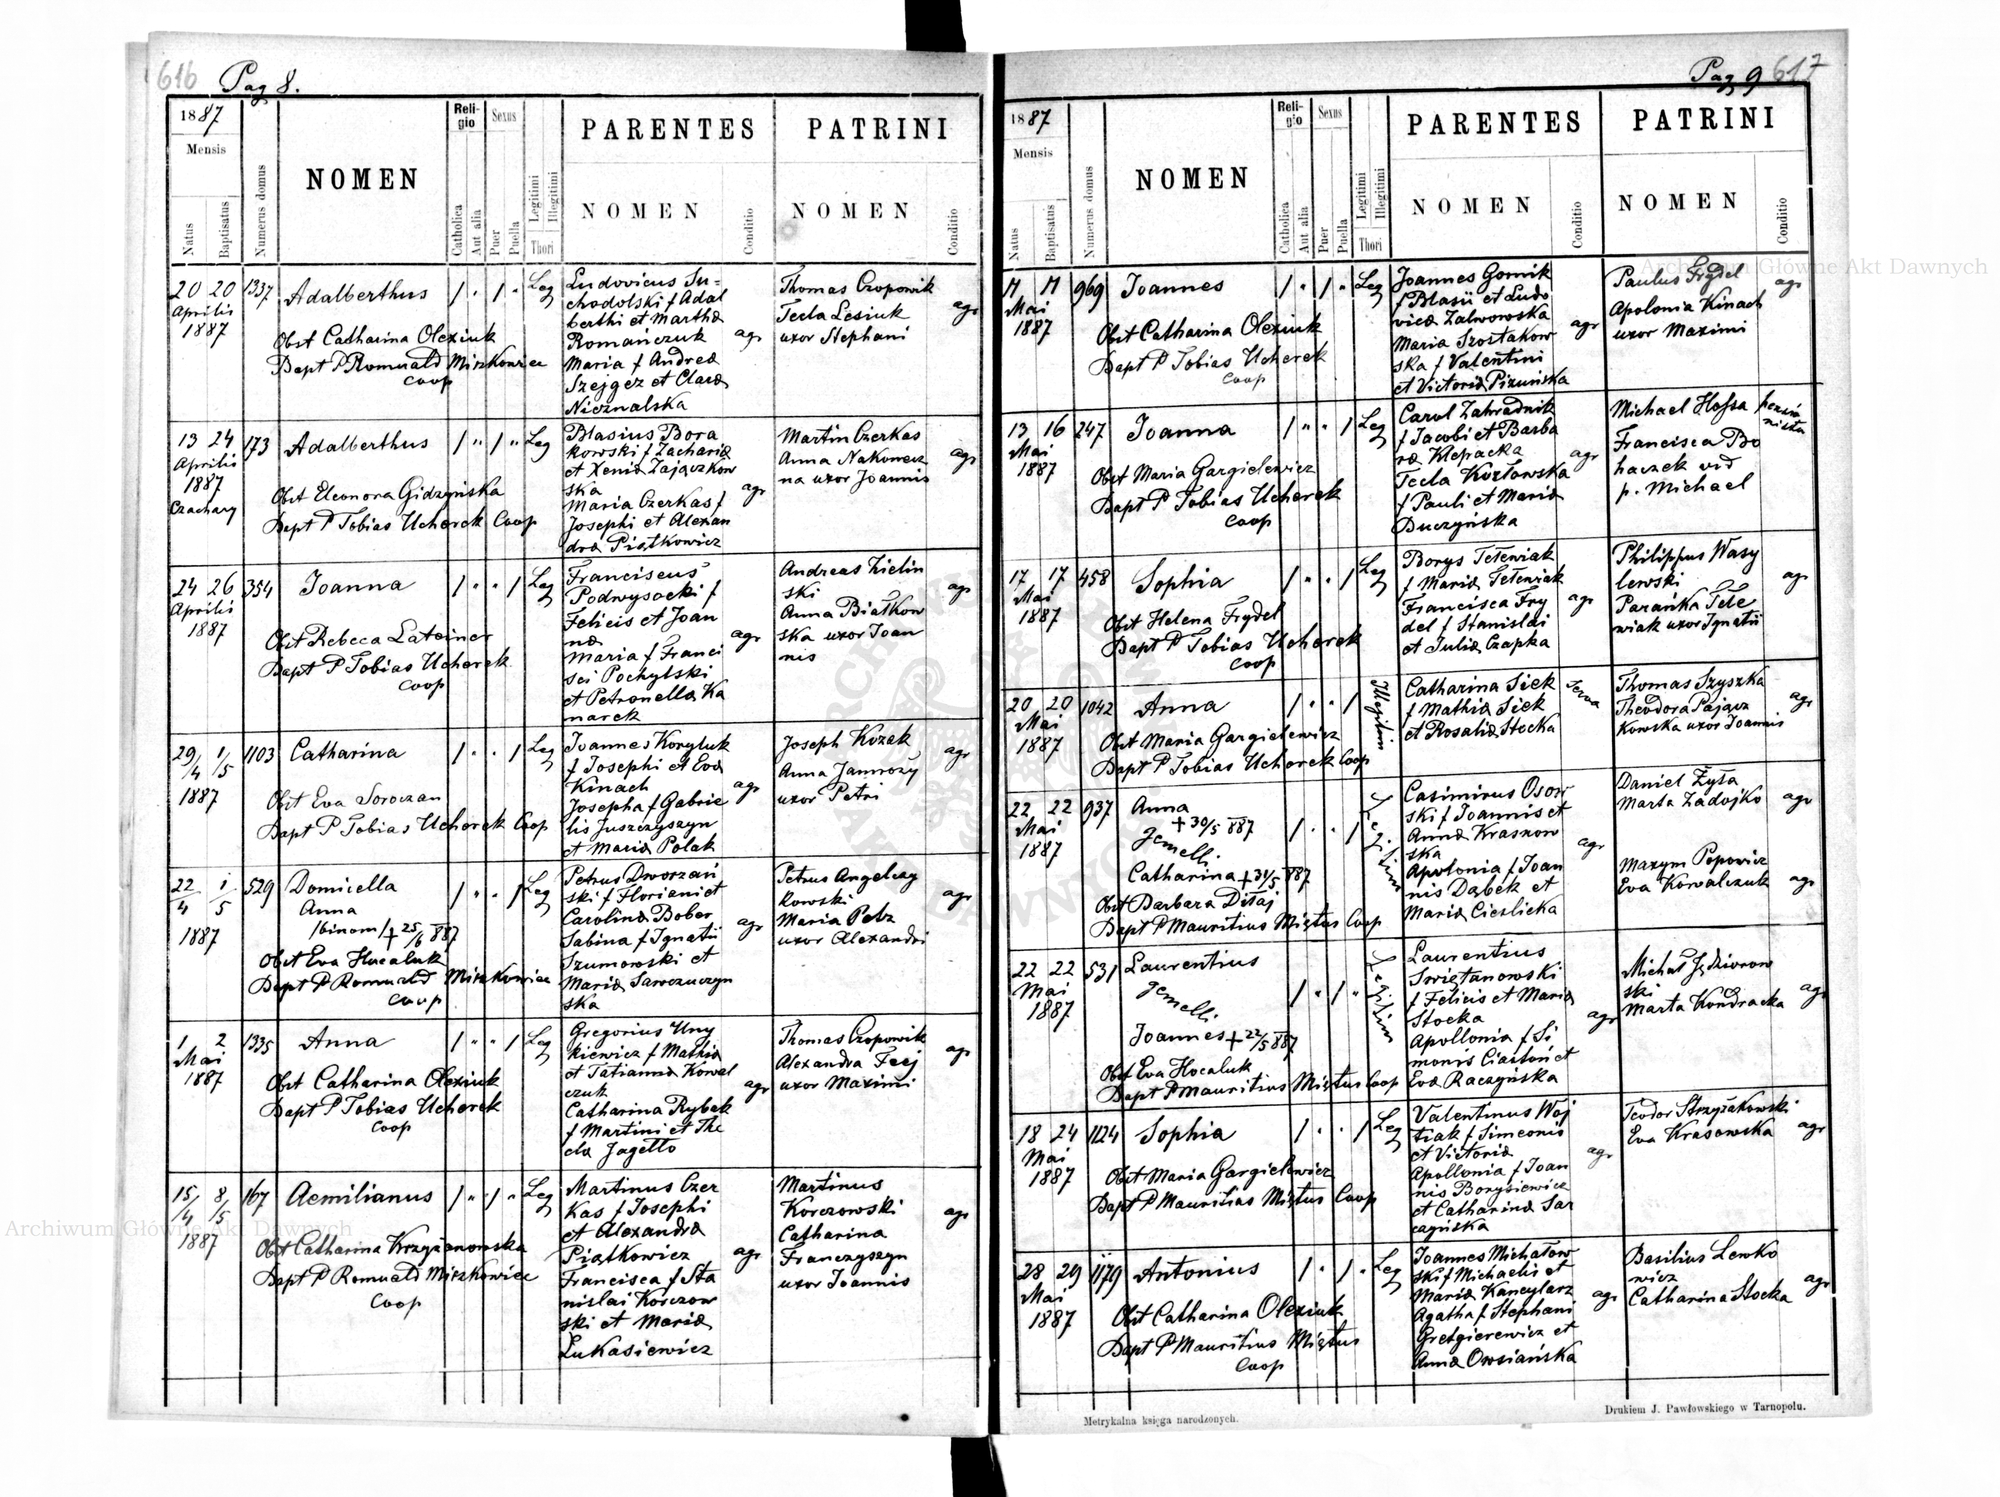 616 Pag 8.
1887
Mensis
Natus
Baptisatus
Numerus domus
NOMEN
Religio
Catholica
Aut alia
Sexus
Puer
Puella
Legitimi
Illegitimi
Thori
PARENTES
NOMEN
Conditio
PATRINI
NOMEN
Conditio
20 20 1337 Adalberthus / " / " Leg
Aprilis
1887
Obst Catharina Olexiuk
Bapt P Romuald Miszkowicz
Coop
Ludovicus Su-
chodolski f Adal
berthi et Martha
Romańczuk agr
Maria f Andrea
Szejgez et Clara
Nieznalska
Thomas Czopowik
Tecla Lesiuk agr
uxor Stephani
13 24 173 Adalberthus / " / " Leg
Aprilis
1887
Czachary
Obst Eleonora Gidzyńska
Bapt P Tobias Ucherek Coop
Blasius Bora
kowski f Zacharia
et Xenia Zajączkow
ska
Maria Czerkas f agr
Josephi et Alexan
dra Piątkowicz
Martin Czerkas
Anna Nakonecz agr
na uxor Joannis
24 26 354 Joanna / " " / Leg
Aprilis
1887
Obst Rebeca Lateiner
Bapt P Tobias Ucherek
Coop
Franciscus
Podwysocki f
Felicis et Joan
na agr
Maria f Franci
sci Pochylski
et Petronella Ka
narek
Andreas Zielin
ski agr
Anna Białkow
ska uxor Joan
nis
29/4 1/5 1103 Catharina / " " / Leg
1887
Obst Eva Soroczan
Bapt P Tobias Ucherek Coop
Joannes Koryluk
f Josephi et Eva
Kinach agr
Josepha f Gabrie
lis Juszczyszyn
et Maria Polak
Joseph Kozak agr
Anna Jamroży
uxor Petri
22/4 1/5 529 Domicella / " " / Leg
Anna
/binom/ + 25/6 887
1887
Obst Eva Hucaluk
Bapt P Romuald Miszkowicz
Coop
Petrus Dworzań
ski f Floriani et
Carolina Bober
Sabina f Ignatii agr
Szumowski et
Maria Sawczuczyn
ska
Petrus Angelczy
kowski agr
Maria Petz
uxor Alexandri
1 2 1335 Anna / " " / Leg
Mai
1887
Obst Catharina Olexiuk
Bapt P Tobias Ucherek
Coop
Gregorius Uny
kiewicz f Mathia
et Tatianna Kowal
czuk agr
Catharina Rybak
f Martini et The
cla Jagełło
Thomas Czopowik
Alexandra Feej agr
uxor Maximi
15/4 8/5 167 Aemilianus / " / " Leg
1887
Obst Catharina Krzyżanowska
Bapt P Romuald Miszkowicz
Coop
Martinus Czer
kas f Josephi
et Alexandra
Piątkowicz agr
Francisca f Sta
nislai Korczow
ski et Maria
Łukasiewicz
Martinus
Korczowski agr
Catharina
Franczyszyn
uxor Joannis
Pag 9 617
1887
Mensis
Natus
Baptisatus
Numerus domus
NOMEN
Religio
Catholica
Aut alia
Sexus
Puer
Puella
Legitimi
Illegitimi
Thori
PARENTES
NOMEN
Conditio
PATRINI
NOMEN
Conditio
11 11 969 Joannes / " / " Leg
Mai
1887
Obst Catharina Olexiuk
Bapt P Tobias Ucherek
Coop
Joannes Gornik
f Blasii et Ludo
vica Zalworowska
Maria Szostakow agr
ska f Valentini
et Victoria Pizuńska
Paulus Frydel agr
Apolonia Kinach
uxor Maximi
13 16 247 Joanna / " " / Leg
Mai
1887
Obst Maria Gargielewicz
Bapt P Tobias Ucherek
Coop
Carol Zahradnik
f Jacobi et Barba
ra Klepacka agr
Tecla Kozłowska
f Pauli et Maria
Buczyńska
Michael Hossa
Francisca Bo
haczek vid
p. Michael
17 17 458 Sophia / " " / Leg
Mai
1887
Obst Helena Frydel
Bapt P Tobias Ucherek
Coop
Borys Teleniak
f Maria Teleniak
Francisca Fry agr
del f Stanislai
et Julia Czapka
Philippus Wasy
lewski agr
Parańka Tele
niak uxor Ignatii
20 20 1042 Anna / " " / Illegitim
Mai
1887
Obst Maria Gargielewicz
Bapt P Tobias Ucherek Coop
Catharina Siek
f Mathia Siek
et Rosalia Stocka
Thomas Szyszka agr
Theodora Pającz
kowska uxor Joannis
22 22 937 Anna
Mai + 30/5 887
1887 Gemelli / " " / Legitim
Catharina + 31/5 887
Obst Barbara Ditaj
Bapt P Mauritius Miętus Coop
Casimirus Osow
ski f Joannis et
Anna Krasnow agr
ska
Apolonia f Joan
nis Dąbek et
Maria Cieślicka
Daniel Żyła
Marta Zadojko agr
Maxym Popowicz
Eva Kowalczuk agr
22 22 531 Laurentius
Mai Gemelli / " / " Legitim
1887
Joannes + 22/5 887
Obst Eva Hucaluk
Bapt P Mauritius Miętus Coop
Laurentius
Swiętanowski
f Felicis et Maria
Stocka agr
Apollonia f Si
monis Ciastoń et
Eva Raczyńska
Michał Jędziorow
ski
Marta Kondracka agr
18 24 1124 Sophia / " " / Leg
Mai
1887
Obst Maria Gargielewicz
Bapt P Mauritius Miętus Coop
Valentinus Woj
tiak f Simeonis
et Victoria
Apollonia f Joan agr
nis Borysiewicz
et Catharina Sar
czyńska
Teodor Strzyżakowski
Eva Krasowska agr
28 29 1179 Antonius / " / " Leg
Mai
1887
Obst Catharina Olexiuk
Bapt P Mauritius Miętus
Coop
Joannes Michałow
ski f Michaelis et
Maria Kancylarz
Agatha f Stephani agr
Gretgierewicz et
Anna Owsiańska
Basilius Lewko
wicz
Catharina Stocka agr
Metrykalna księga narodzonych.
Drukiem J. Pawłowskiego w Tarnopolu.
Archiwum Główne Akt Dawnych
Archiwum Główne Akt Dawnych